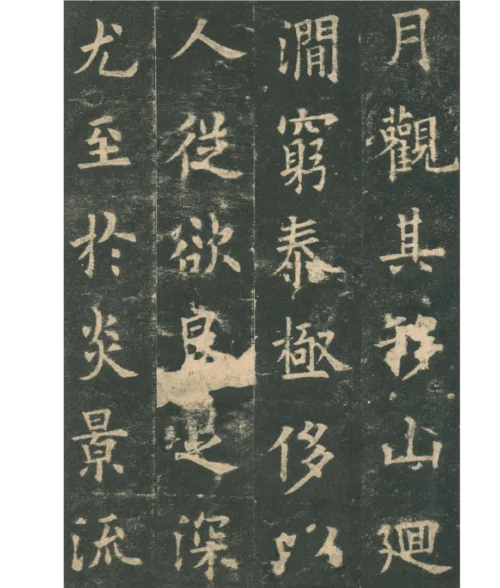 月觀其移山廻
澗窮泰極侈以
人從欲良足深
尤至於炎景流